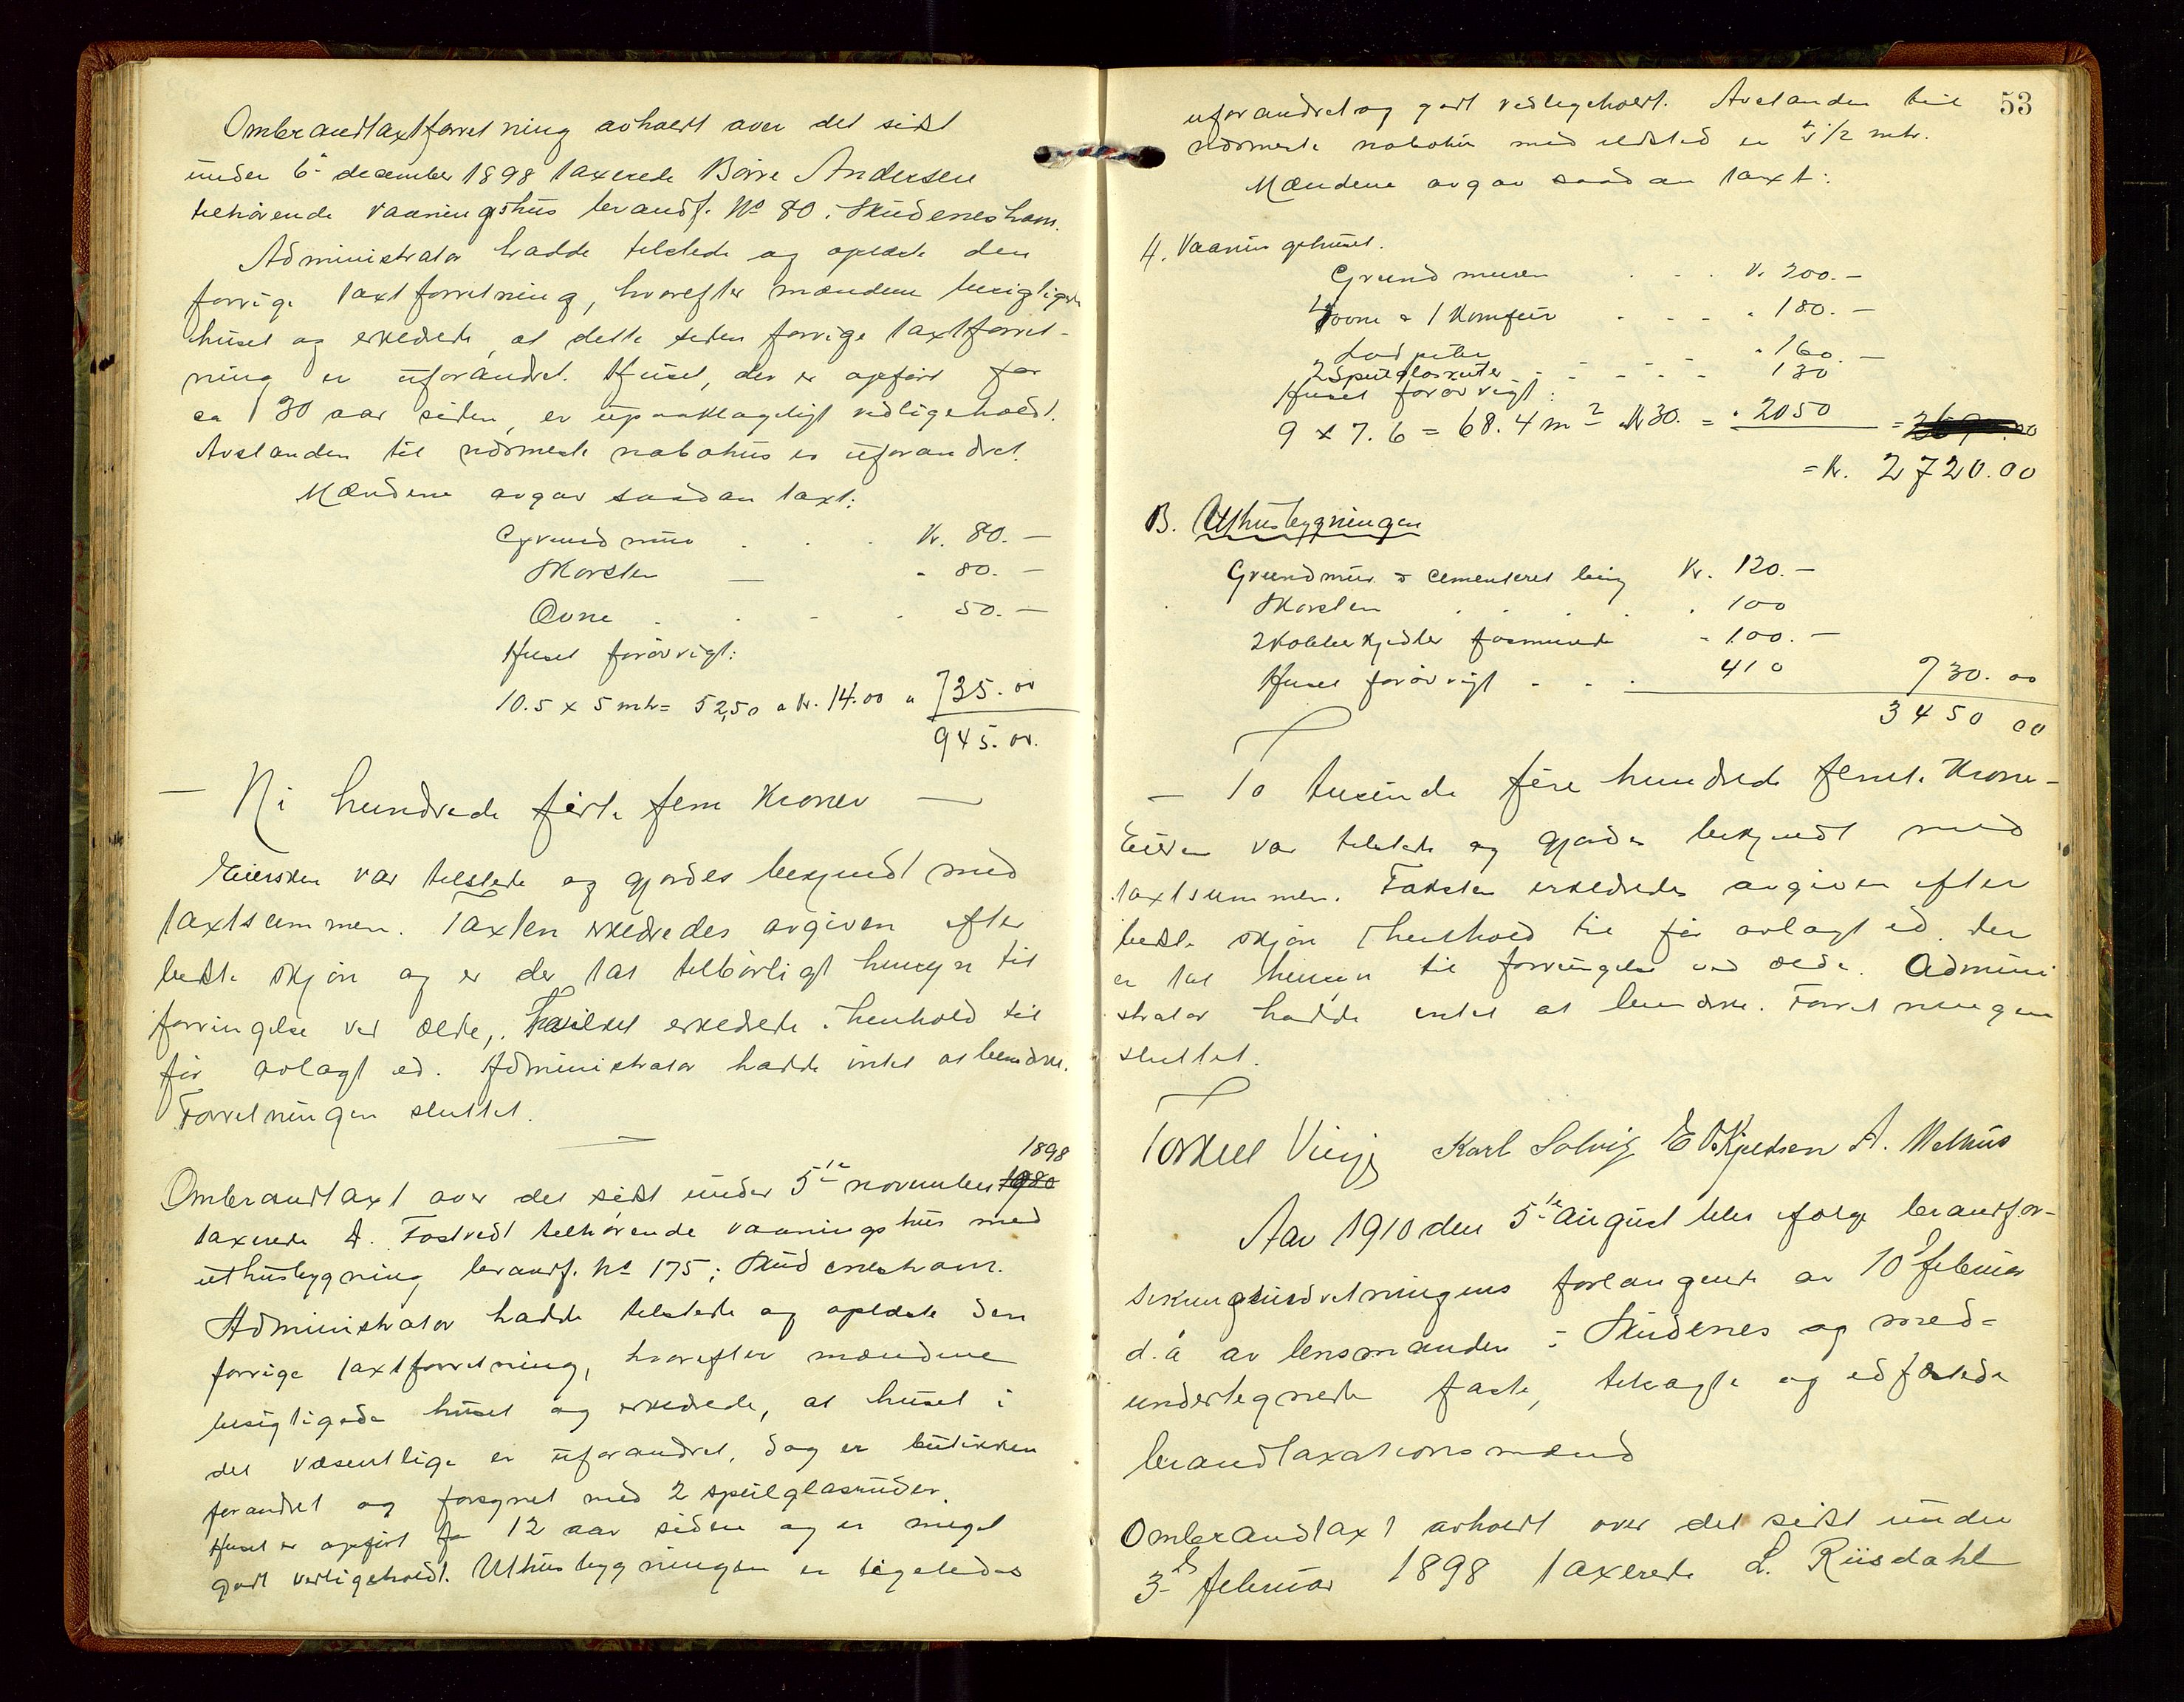 Ombrandtaxtforretning avholdt over det sidst
under 6te december 1898 taxerede Børre Andersen
tilhørende vaaningshus brandf. No 80 i Skudeneshavn.
Administrator hadde tilstede og oplæste den
forrige taxtforretning, hvorefter mændene besigtigede
huset og erklærte, at dette siden forrige taxtforret-
ning er uforandret. Huset, der er opført for
ca 130 aar siden, er upaaklageligt vedligeholdt.
Avstanden til nærmeste nabohus er uforandret.
Mændene avgav saadan taxt:
Grundmur . . . Kr. 80.—
Skorsten — " 80.—
Ovne . . . . 50.—
Huset forøvrigt:
10.5 x 5 mtr= 52,50 a Kr. 14.00 " 735.00
945.00.
— Ni hundrede førti fem Kroner —
Eiersken var tilstede og gjordes bekjendt med
taxtsummen. Taxten erklæredes avgiven efter
bedste skjøn og er der tat tilbørligt hensyn til
forringelse ved ælde, hvilket erklærede i henhold til
før avlagt ed. Administrator hadde intet at bemærke.
Forretningen sluttet.
1898
Ombrandtaxt over det sidst under 5te november 1980
taxerede A. Fostvedt tilhørende vaaningshus med
uthusbygning brandf. No 175 i Skudeneshavn.
Administrator hadde tilstede og oplæste den
forrige taxtforretning, hvorefter mændene
besigtigede huset og erklærede, at huset i
det væsentlige er uforandret, dog er butikken
forandret og forsynet med 2 speilglasruder.
Huset er opført for 12 aar siden og er meget
godt vedligeholdt. Uthusbygningen er ligeledes
53
uforandret og godt vedligeholdt. Avstanden til
nærmeste nabohus med ildsted er 1/2 mtr.
Mændene avgav saadan taxt:
A. Vaaningshuset.
Grundmuren . . . Kr. 200.—
4 ovne & 1 Komfur . . . " 180.—
Lod piber " 160.—
2 Speilglasruter - - - - - 130
Huset forøvrigt:
9 x 7.6 = 68.4 m2 a Kr 30. = " 2050 =
= Kr. 2720.00
B. Uthusbygningen
Grundmur & cementeret bing Kr. 120.—
Skorsten . . . . . . 100
2 Kobberkjedler fasmurede - 100.—
Huset forøvrigt - - - 410 730.00
3450 00
— To tusinde fire hundrede femti Kroner —
Eieren var tilstede og gjordes bekjendt med
taxtsummen. Taksten erklæredes avgiven efter
bedste skjøn i henhold til før avlagt ed. Der
er tat hensyn til forringelse ved ælde. Admini
strator hadde intet at bemærke. Forretningen
sluttet.
Torkell Vinje Karl Solvig E Kjeldsen A. Melhus
Aar 1910 den 5te August blev ifølge brandfor-
sikringsindretningens forlangende av 10de februar
d.å av lensmanden i Skudenes og med-
undertegnede faste, tilsagte og edfæstede
brandtaxationsmænd
Ombrandtaxt avholdt over det sidst under
3de februar 1898 taxerede L. Riisdahl